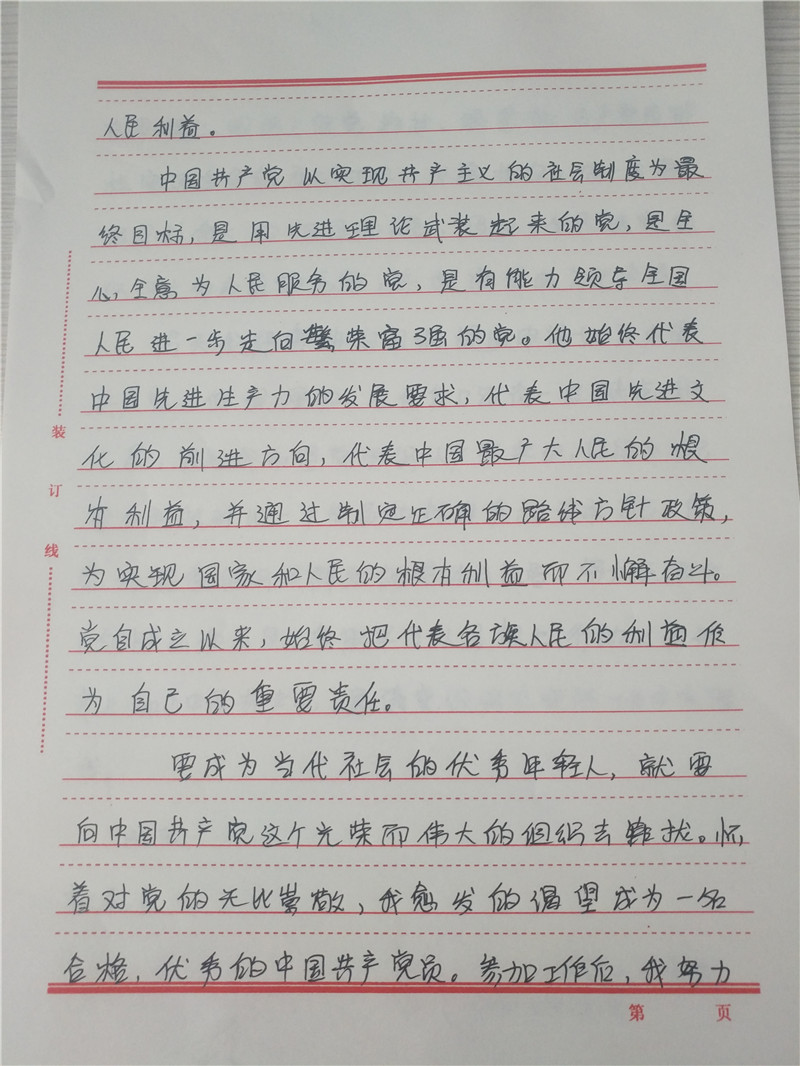 人民利益。
中国共产党以实现共产主义的社会制度为最
终目标，是用先进理论武装起来的党，是全
心全意为人民服务的党，是有能力领导全国
人民进一步走向繁荣富强的党。他始终代表
中国先进生产力的发展要求，代表中国先进文
化的前进方向，代表中国最广大人民的根
本利益，并通过制定正确的路线方针政策，
为实现国家和人民的根本利益而不懈奋斗。
党自成立以来，始终把代表各族人民的利益作
为自己的重要责任。
要成为当代社会的优秀年轻人，就要
向中国共产党这个光荣而伟大的组织去靠拢。怀
着对党的无比崇敬，我愈发的渴望成为一名
合格，优秀的中国共产党员。参加工作后，我努力
装
订
线
第 页